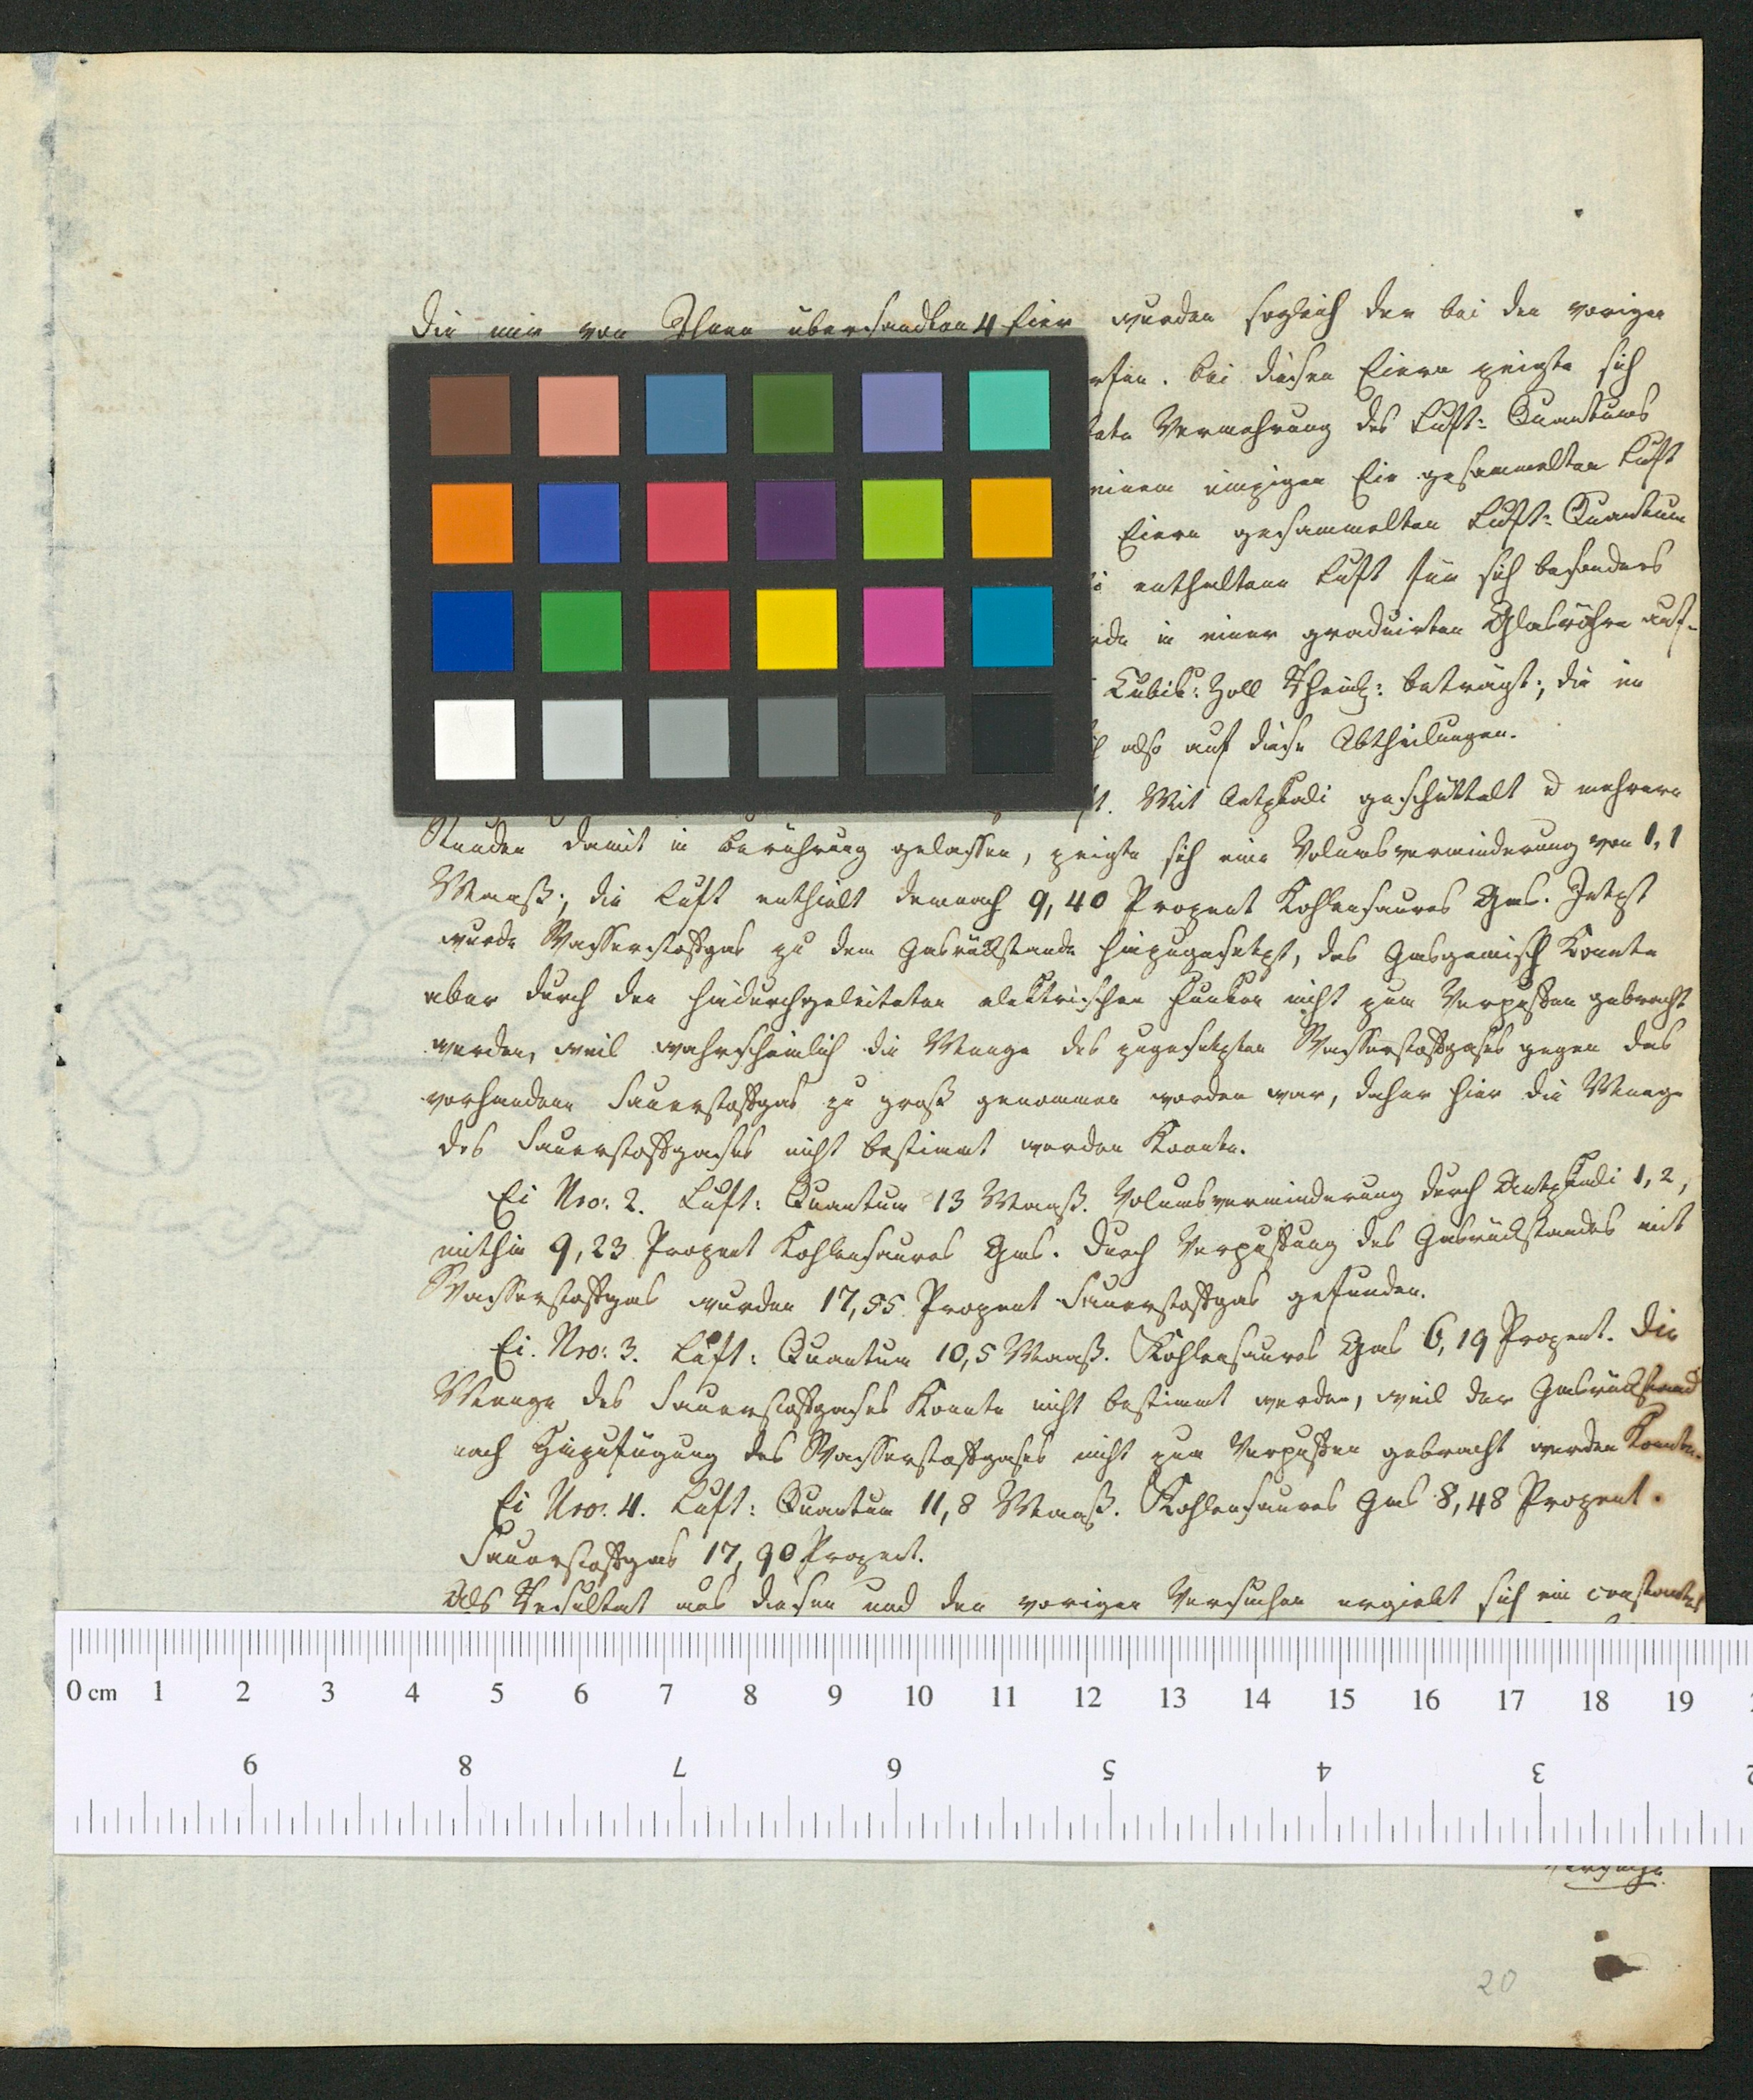 Die mir von Ihnen übersandten 4 Eier wurden sogleich der bei den vorigen
rfen. bei diesen Eiern zeigte sich
tete Vermehrung des Luft: Quantums
einem einzigen Ei gesammelten Luft
Eiern gesammelten Luft: Quantum
i enthaltene Luft für sich besonders
rde in einer graduirten Glasröhre auf-
Cubik: Zoll Rheinl: beträgt; die im
h also auf diese Abtheilungen.
ft. Mit Aetzkali geschüttelt u mehrere
Stunden damit in Berührung gelassen, zeigte sich eine Volumsverminderung von 1,1
Maaß; die Luft enthielt demnach 9,40 Prozent Kohlensaures Gas. Jetzt
wurde Wasserstoffgas zu dem Gasrückstande hinzugesetzt, das Gasgemisch konnte
aber durch den hindurchgeleiteten elektrischen Funken nicht zum Verpuffen gebracht
werden, weil wahrscheinlich die Menge des zugesetzten Wasserstoffgases gegen das
vorhandene Sauerstoffgas zu groß genommen worden war, daher hier die Menge
des Sauerstoffgases nicht bestimmt werden konnte.
Ei Nro: 2. Luft: Quantum 13 Maaß. Volumsverminderung durch Aetzkali 1,2,
mithin 9,23 Prozent Kohlensaures Gas. Durch Verpuffung des Gasrückstandes mit
Wasserstoffgas wurden 17,55 Prozent Sauerstoffgas gefunden.
Ei. Nro: 3. Luft: Quantum 10,5 Maaß. Kohlensaures Gas 6,19 Prozent. Die
Menge des Sauerstoffgases konnte nicht bestimmt werden, weil der Gasrückstand
nach Hinzufügung des Wasserstoffgases nicht zum Verpuffen gebracht werden konnte.
Ei Nro: 4. Luft: Quantum 11,8 Maaß. Kohlensaures Gas 8,48 Prozent.
Sauerstoffgas 17,90 Prozent.
Als Resultat aus diesen und den vorigen Versuchen ergiebt sich ein constantes
0 cm 1 2 3 4 5 6 7 8 9 10 11 12 13 14 15 16 17 18 19
9 8 7 6 5 4 3 2
20